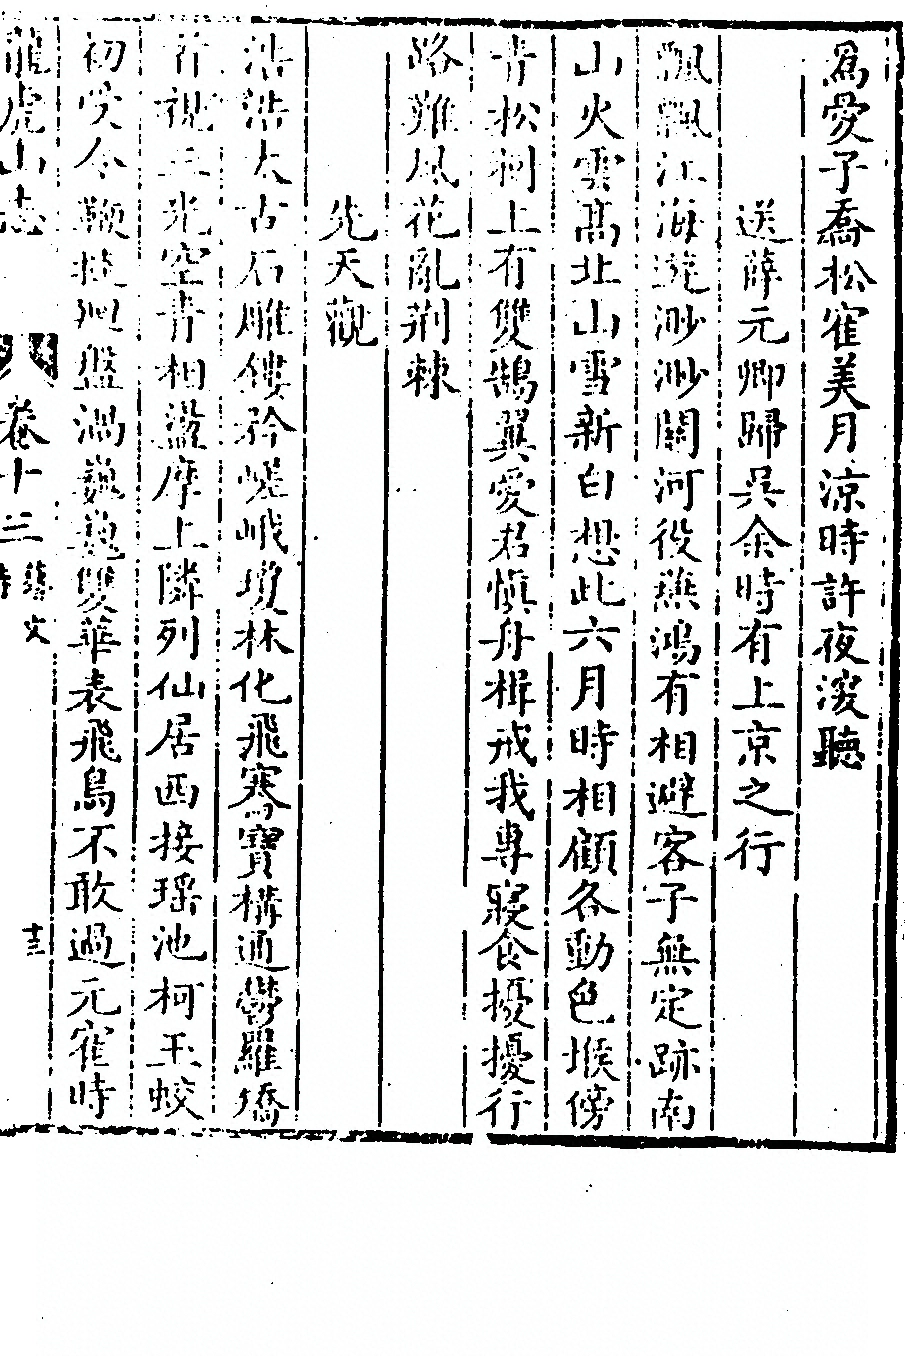 爲愛子喬松寉美月涼時許夜深聽
送薛元卿歸吳余時有上京之行
飄飄江海遊渺渺關河役燕鴻有相避客子無定跡南
山火雲髙北山雪新白想此六月時相顧各動色堠傍
青松樹上有雙鵠翼愛君慎舟楫戒我專寢食擾擾行
路難風花亂荊棘
先天觀
浩浩太古石雕鏤矜嵯峨瓊林化飛騫寶構通鬱羅喬
首視三光空青相盪摩上隣列仙居西接瑤池柯玉蛟
初受令鞭挂廻盤渦巍巍雙華表飛鳥不敢過元寉時
龍虎山志
卷十三
藝文
詩
十三